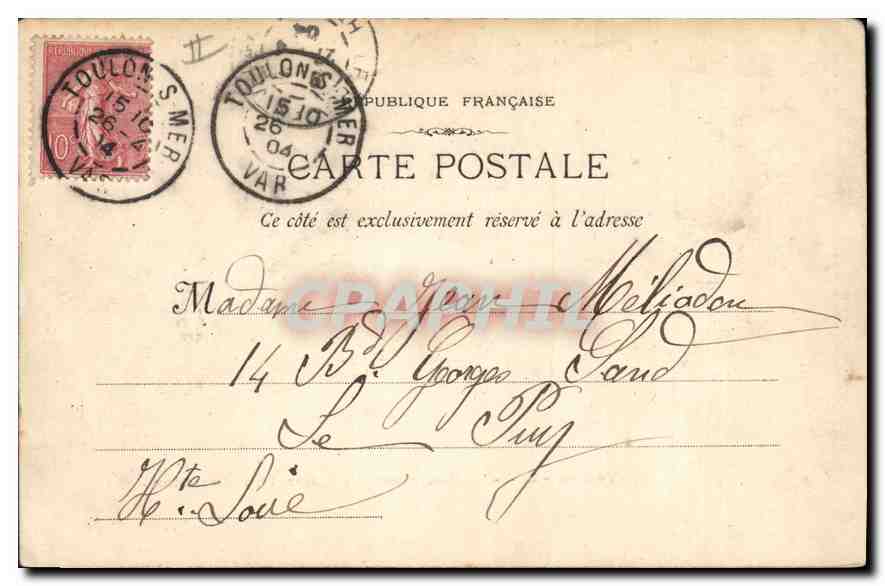 RÉPUBLIQUE FRANÇAISE
CARTE POSTALE
Ce côté est exclusivement réservé à l'adresse
Madame Jean Méliadon
14 Bd. Georges Sand
Le Puy
Hte Loire
TOULON S-MER
15 10
26 -4
04
VAR
TOULON S-MER
15 10
26
04
VAR
10c
CPAPHIL